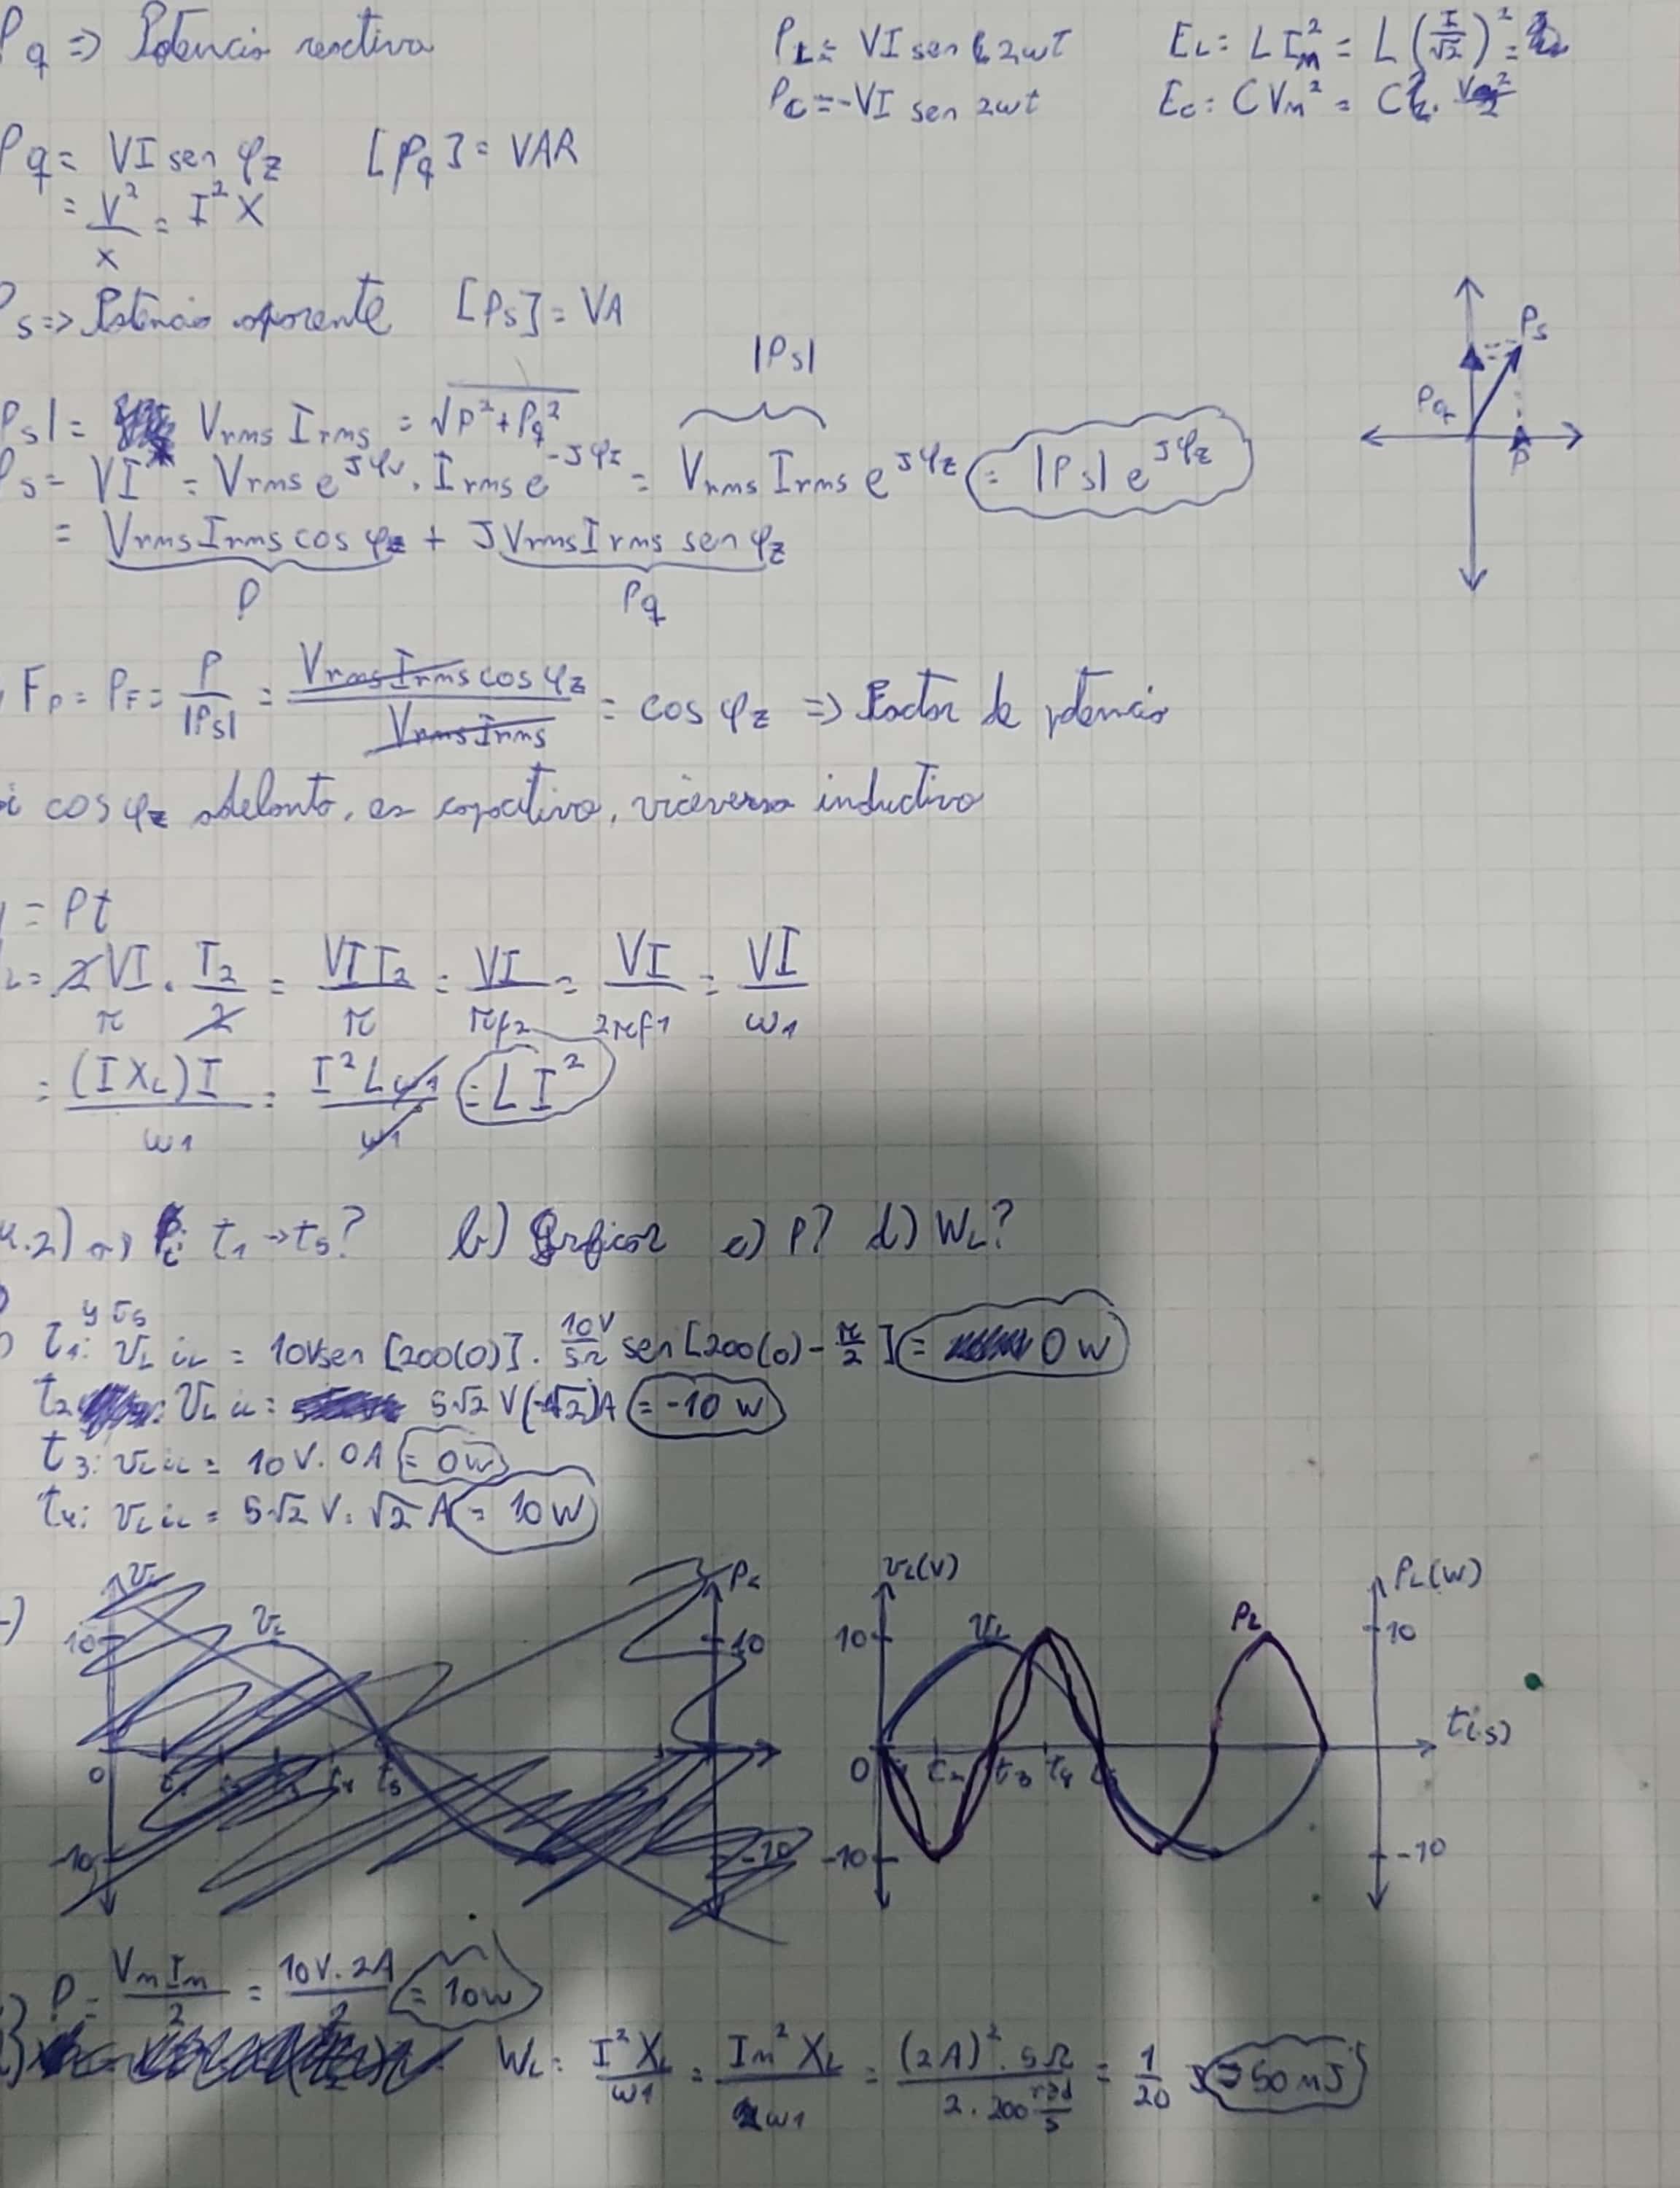 Pq => Potencia reactiva
PL = VI sen 2ωt
EL = L Im² = L (I/√2)² =
Pc = -VI sen 2ωt
Ec = C Vm² = C
Pq = VI sen φz [Pq] = VAR
= V²/X = I² X
Ps => Potencia aparente [Ps] = VA
|Ps|
Ps
Pq
P
Ps| = Vrms Irms = √P² + Pq²
Ps = VI* = Vrms e^Jφv . Irms e^-JφI = Vrms Irms e^Jφz = |Ps| e^Jφz
= Vrms Irms cos φz + J Vrms Irms sen φz
P Pq
Fp = PF = P/|Ps| = Vrms Irms cos φz / Vrms Irms = cos φz => Factor de potencia
i cos φz adelanto, es capacitivo, viceversa inductivo
= Pt
L = 2VI/π . T2/2 = VIT2/π = VI/πf2 = VI/2πf1 = VI/ω1
= (I XL)I/ω1 = I² Lω1/ω1 = LI²
4.2) a) Pi t1 -> t5? b) Graficar c) P? d) WL?
y t5
t1: vL iL = 10Vsen [200(0)] . 10V/5Ω sen [200(0) - π/2] = 0 W
t2: vL iL = 5√2 V(-√2)A = -10 W
t3: vL iL = 10V . 0A = 0W
t4: vL iL = 5√2 V . √2 A = 10W
vL PL vL(V) PL(W)
10 vL 10 10 vL PL 10
t(s)
0 t1 t2 t3 t4 t5 0 t2 t3 t4 t5
-10 -10 -10 -10
P = Vm Im/2 = 10V . 2A/2 = 10W
WL = I² XL/ω1 = Im² XL/2ω1 = (2A)² . 5Ω/2 . 200 rad/s = 1/20 J = 50 mJ